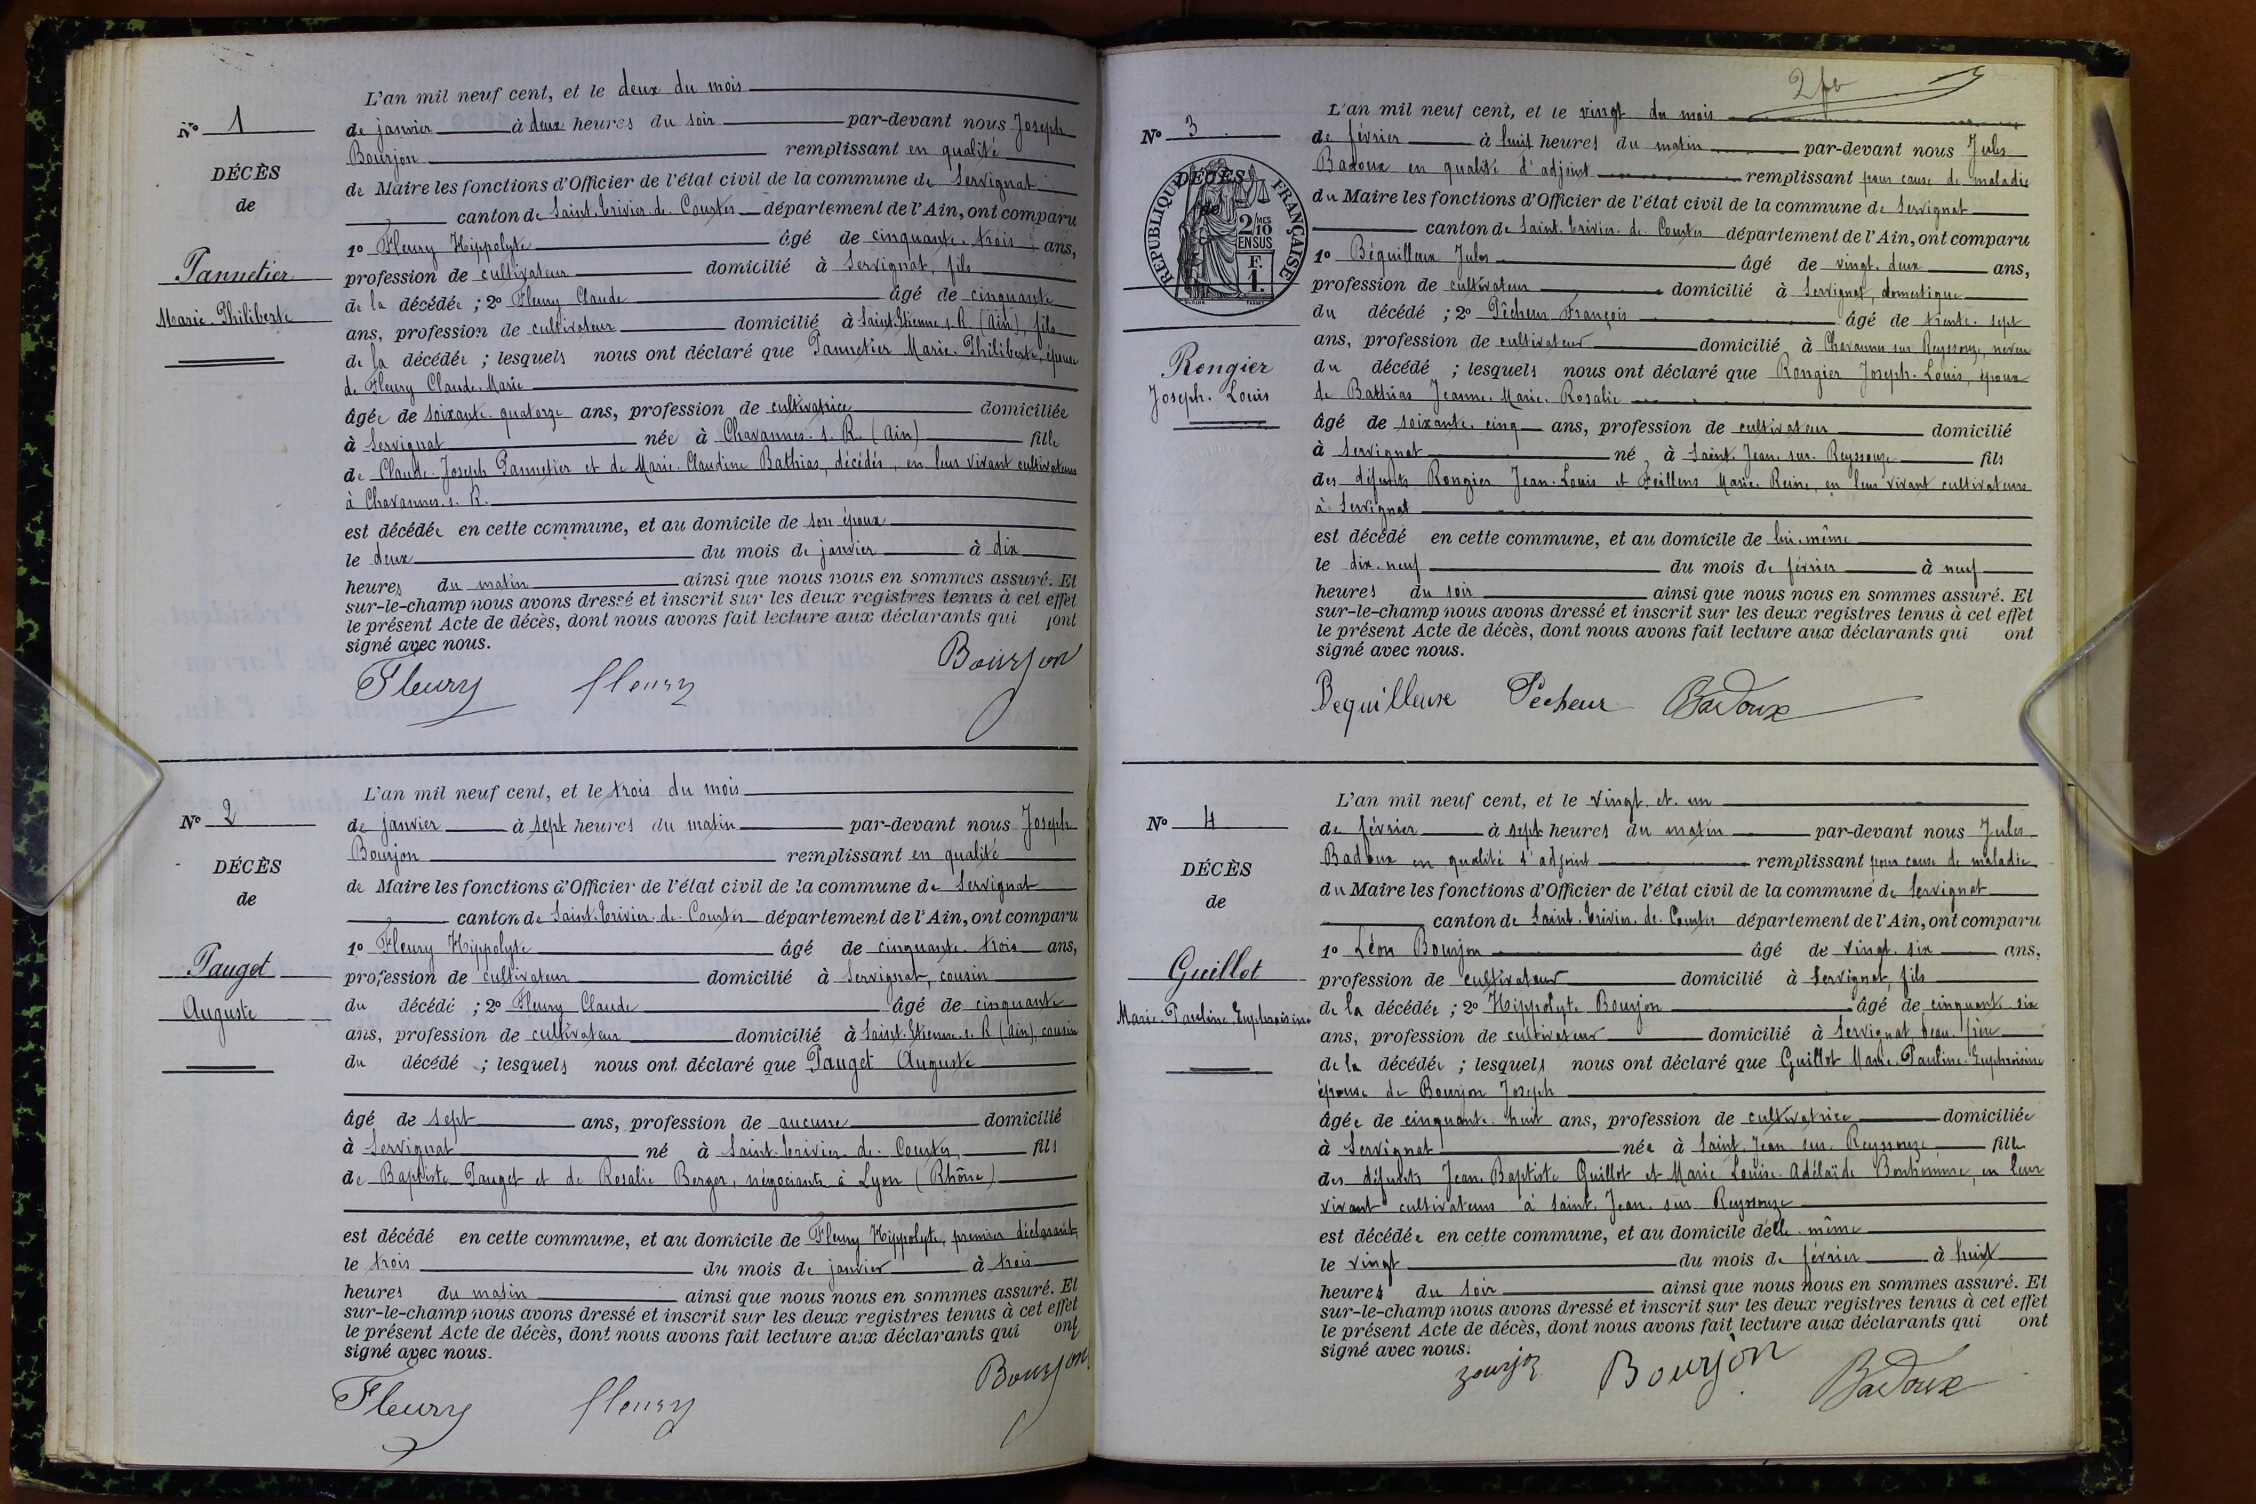 L'an mil neuf cent, et le deux du mois
N° 1
de janvier à deux heures du soir par-devant nous Joseph
Bourjon remplissant en qualité
DÉCÈS
de Maire les fonctions d'Officier de l'état civil de la commune de Servignat
de
canton de Saint-Trivier-de-Courtes département de l'Ain, ont comparu
1° Fleury Hippolyte âgé de cinquante-trois ans,
Pannetier
profession de cultivateur domicilié à Servignat, fils
de la décédée ; 2° Fleury Claude âgé de cinquante
Marie-Philiberte
ans, profession de cultivateur domicilié à Saint-Etienne s. R. (Ain), fils
de la décédée ; lesquels nous ont déclaré que Pannetier Marie-Philiberte, épouse
de Fleury Claude-Marie
âgée de soixante-quatorze ans, profession de cultivatrice domiciliée
à Servignat née à Chavannes-s. R. (Ain) fille
de Claude-Joseph Pannetier et de Marie-Claudine Bathias, décédés, en leur vivant cultivateurs
à Chavannes-s. R.
est décédée en cette commune, et au domicile de son époux
le deux du mois de janvier à dix
heures du matin ainsi que nous nous en sommes assuré. Et
sur-le-champ nous avons dressé et inscrit sur les deux registres tenus à cet effet
le présent Acte de décès, dont nous avons fait lecture aux déclarants qui ont
signé avec nous.
Fleury fleury Bourjon
L'an mil neuf cent, et le trois du mois
N° 2
de janvier à sept heures du matin par-devant nous Joseph
Bourjon remplissant en qualité
DÉCÈS
de Maire les fonctions d'Officier de l'état civil de la commune de Servignat
de
canton de Saint-Trivier-de-Courtes département de l'Ain, ont comparu
1° Fleury Hippolyte âgé de cinquante-trois ans,
Pauget
profession de cultivateur domicilié à Servignat, cousin
du décédé ; 2° Fleury Claude âgé de cinquante
Auguste
ans, profession de cultivateur domicilié à Saint-Etienne-s. R (Ain), cousin
du décédé ; lesquels nous ont déclaré que Pauget Auguste
âgé de sept ans, profession de aucune domicilié
à Servignat né à Saint-Trivier-de-Courtes, fils
de Baptiste Pauget et de Rosalie Berger, négociants à Lyon (Rhône)
est décédé en cette commune, et au domicile de Fleury Hippolyte, premier déclarant,
le trois du mois de janvier à trois
heures du matin ainsi que nous nous en sommes assuré. Et
sur-le-champ nous avons dressé et inscrit sur les deux registres tenus à cet effet
le présent Acte de décès, dont nous avons fait lecture aux déclarants qui ont
signé avec nous.
Fleury fleury Bourjon
L'an mil neuf cent, et le vingt du mois
N° 3
de février à huit heures du matin par-devant nous Jules
Badoux en qualité d'adjoint remplissant pour cause de maladie
DÉCÈS
de
RÉPUBLIQUE FRANÇAISE
2/10 EN SUS
F.
1.
du Maire les fonctions d'Officier de l'état civil de la commune de Servignat
canton de Saint-Trivier-de-Courtes département de l'Ain, ont comparu
1° Béquilleux Jules âgé de vingt-deux ans,
profession de cultivateur domicilié à Servignat, domestique
du décédé ; 2° Pêcheur François âgé de trente-sept
ans, profession de cultivateur domicilié à Chavannes sur Reyssouze, neveu
Rongier
du décédé ; lesquels nous ont déclaré que Rongier Joseph-Louis, époux
Joseph-Louis
de Bathias Jeanne-Marie-Rosalie
âgé de soixante-cinq ans, profession de cultivateur domicilié
à Servignat né à Saint-Jean-sur-Reyssouze fils
des défunts Rongier Jean-Louis et Feillens Marie-Reine, en leur vivant cultivateurs
à Servignat
est décédé en cette commune, et au domicile de lui-même
le dix-neuf du mois de février à neuf
heures du soir ainsi que nous nous en sommes assuré. Et
sur-le-champ nous avons dressé et inscrit sur les deux registres tenus à cet effet
le présent Acte de décès, dont nous avons fait lecture aux déclarants qui ont
signé avec nous.
Bequilleux Pêcheur Badoux
L'an mil neuf cent, et le vingt-et-un
N° 4
de février à sept heures du matin par-devant nous Jules
Badoux en qualité d'adjoint remplissant pour cause de maladie
DÉCÈS
du Maire les fonctions d'Officier de l'état civil de la commune de Servignat
de
canton de Saint-Trivier-de-Courtes département de l'Ain, ont comparu
1° Léon Bourjon âgé de vingt-six ans,
Guillot
profession de cultivateur domicilié à Servignat, fils
Marie-Pauline-Euphroisine
de la décédée ; 2° Hippolyte Bourjon âgé de cinquante-six
ans, profession de cultivateur domicilié à Servignat beau-frère
de la décédée ; lesquels nous ont déclaré que Guillot Marie-Pauline-Euphroisine
épouse de Bourjon Joseph
âgée de cinquante-huit ans, profession de cultivatrice domiciliée
à Servignat née à Saint-Jean-sur-Reyssouze fille
des défunts Jean-Baptiste Guillot et Marie-Louise-Adélaïde Bonhomme, en leur
vivant cultivateurs à Saint-Jean-sur-Reyssouze
est décédée en cette commune, et au domicile d'elle-même
le vingt du mois de février à huit
heures du soir ainsi que nous nous en sommes assuré. Et
sur-le-champ nous avons dressé et inscrit sur les deux registres tenus à cet effet
le présent Acte de décès, dont nous avons fait lecture aux déclarants qui ont
signé avec nous.
Bourjon Badoux